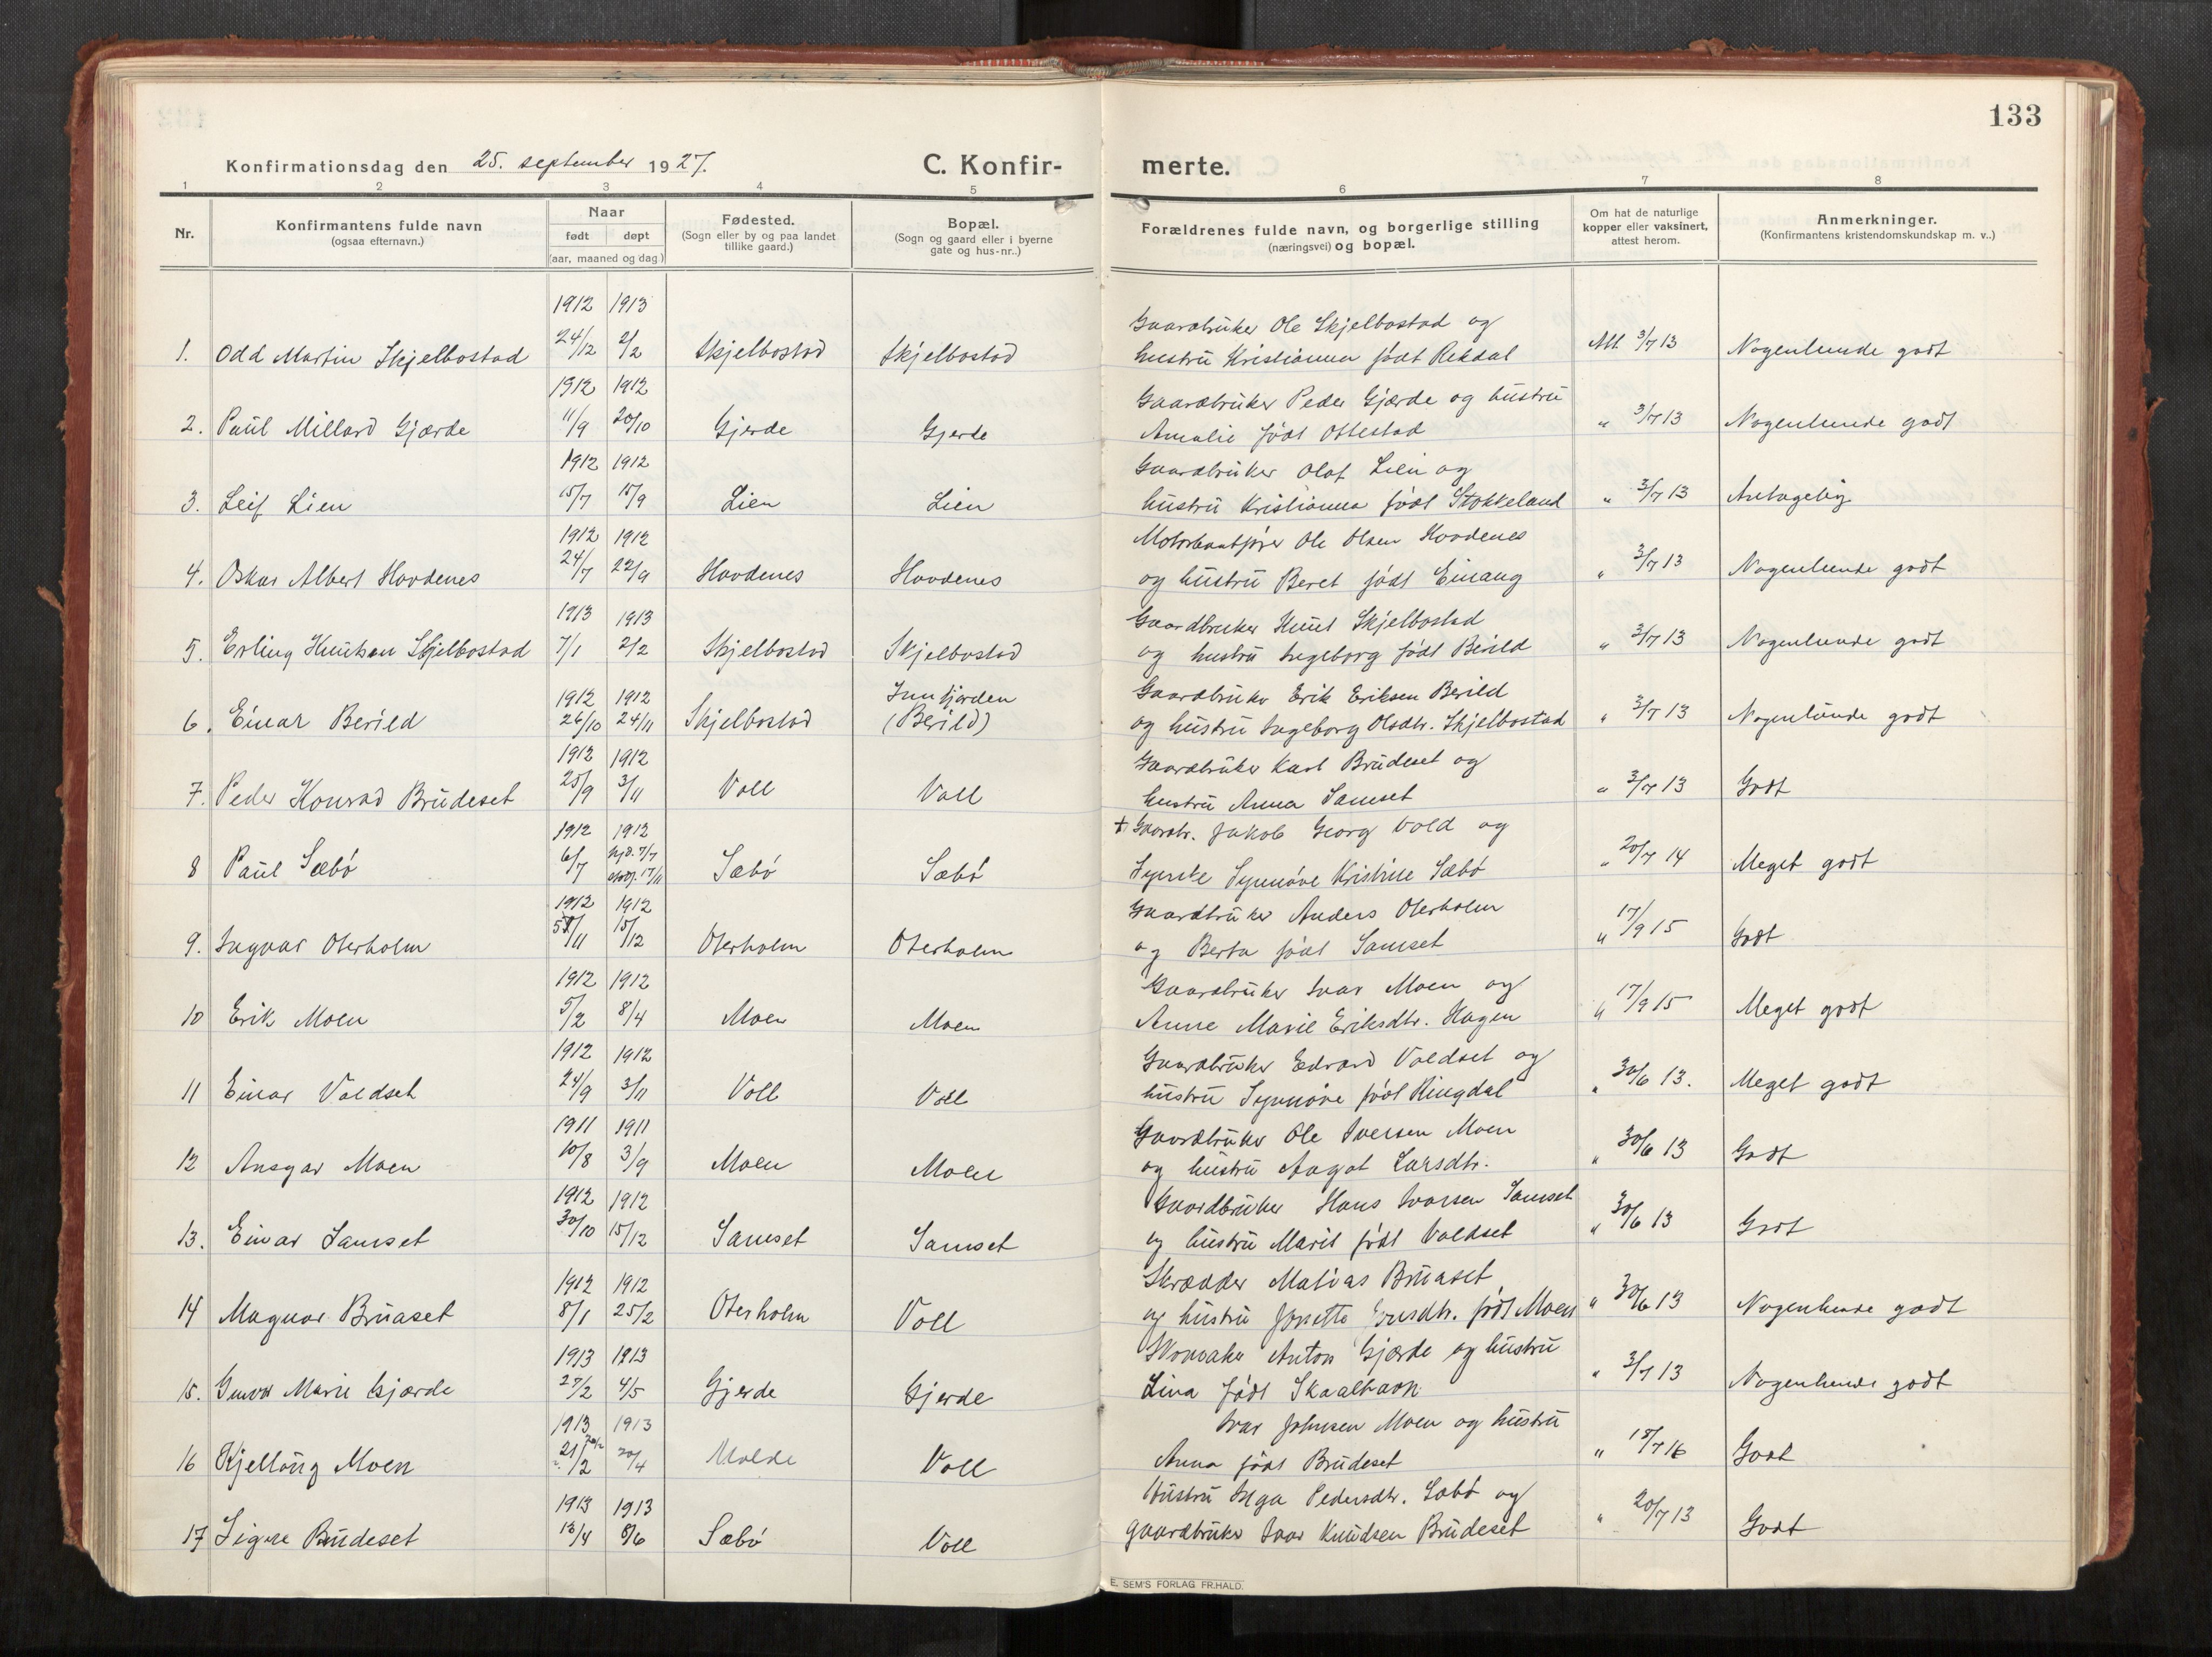 133
Konfirmationsdag den 25. september 1927.
C. Konfir-
merte.
1 2 3 4 5 6 7 8
Nr.
Konfirmantens fulde navn
(ogsaa efternavn.)
Naar
født døpt
(aar, maaned og dag.)
Fødested.
(Sogn eller by og paa landet
tillike gaard.)
Bopæl.
(Sogn og gaard eller i byerne
gate og hus-nr..)
Forældrenes fulde navn, og borgerlige stilling
(næringsvei) og bopæl.
Om hat de naturlige
kopper eller vaksinert,
attest herom.
Anmerkninger.
(Konfirmantens kristendomskundskap m. v..)
1912 1913 Gaardbruker Ole Skjelbostad og
1. Odd Martin Skjelbostad 24/12 2/2 Skjelbostad Skjelbostad hustru Kristianna født Rekdal Att. 3/7 13 Nogenlunde godt
1912 1912 Gaardbruker Peder Gjærde og hustru
2. Paul Millard Gjærde 11/9 20/10 Gjerde Gjerde Amalie født Ottestad " 3/7 13 Nogenlunde godt
1912 1912 Gaardbruker Olaf Lien og
3. Leif Lien 15/7 15/9 Lien Lien hustru Kristianna født Stokkeland " 3/7 13 Antagelig
1912 1912 Motorbaatfører Ole Olsen Hovdenes
4. Oskar Albert Hovdenes 24/7 22/9 Hovdenes Hovdenes og hustru Beret født Einang " 3/7 13 Nogenlunde godt
1913 1913 Gaardbruker Knut Skjelbostad
5. Erling Knutsen Skjelbostad 7/1 2/2 Skjelbostad Skjelbostad og hustru Ingeborg født Berild " 3/7 13 Nogenlunde godt
1912 1912 Innfjorden Gaardbruker Erik Eriksen Berild
6. Einar Berild 26/10 24/11 Skjelbostad (Berild) og hustru Ingeborg Olsdtr. Skjelbostad " 3/7 13 Nogenlunde godt
1912 1912 Gaardbruker Karl Brudeset og
7. Peder Konrad Brudeset 25/9 3/11 Voll Voll hustru Anna Samset " 3/7 13 Godt
1912 1912 + Gaardbr. Jakob Georg Vold og
8 Paul Sæbø 6/7 hjd. 7/7 17/11 Sæbø Sæbø Synnøve Kristine Sæbø " 20/7 14 Meget godt
1912 1912 Gaardbruker Anders Oterholm
9. Ingvar Oterholm /11 15/12 Oterholm Oterholm og Berta født Samset " 17/9 15 Godt
1912 1912 Gaardbruker Ivar Moen og
10 Erik Moen 5/2 8/4 Moen Moen Anne Marie Eriksdtr. Hagen " 17/9 15 Meget godt
1912 1912 Gaardbruker Edvard Voldset og
11 Einar Voldset 24/9 3/11 Voll Voll hustru Synnøve født Ringdal " 30/6 13. Meget godt
1911 1911 Gaardbruker Ole Iversen Moen
12 Ansgar Moen 10/8 3/9 Moen Moen og hustru Aagot Larsdtr. " 30/6 13 Godt
1912 1912 Gaardbruker Hans Ivarsen Samset
13. Einar Samset 30/10 15/12 Samset Samset og hustru Marit født Voldset " 30/6 13 Godt
1912 1912 Skrædder Matias Bruaset
14 Magnar Bruaset 8/1 25/2 Oterholm Voll og hustru Josette født Moen " 30/6 13 Nogenlunde godt
1913 1913 Anton Gjærde og hustru
15. Gunvor Marie Gjærde 27/2 4/5 Gjerde Gjerde Lina født " 3/7 13 Nogenlunde godt
1913 1913 Ivar Johnsen Moen og hustru
16 Kjellaug Moen 21/2 20/4 Molde Voll Anna født Brudeset " 15/7 16 Godt
1913 1913 Hustru Inga Pedersdtr. Sæbø og
17 Signe Brudeset 13/4 8/6 Sæbø Voll gaardbruker Ivar Knudsen Brudeset " 20/7 13 Godt
E. SEM'S FORLAG FR.HALD.